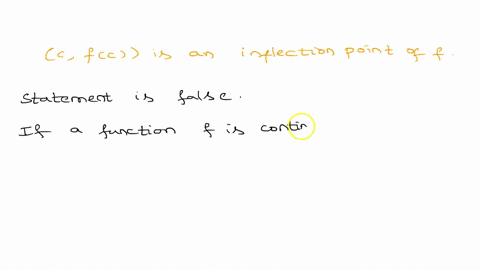 (c, f(c)) is an inflection point of f.
Statement is false.
If a function f is contin